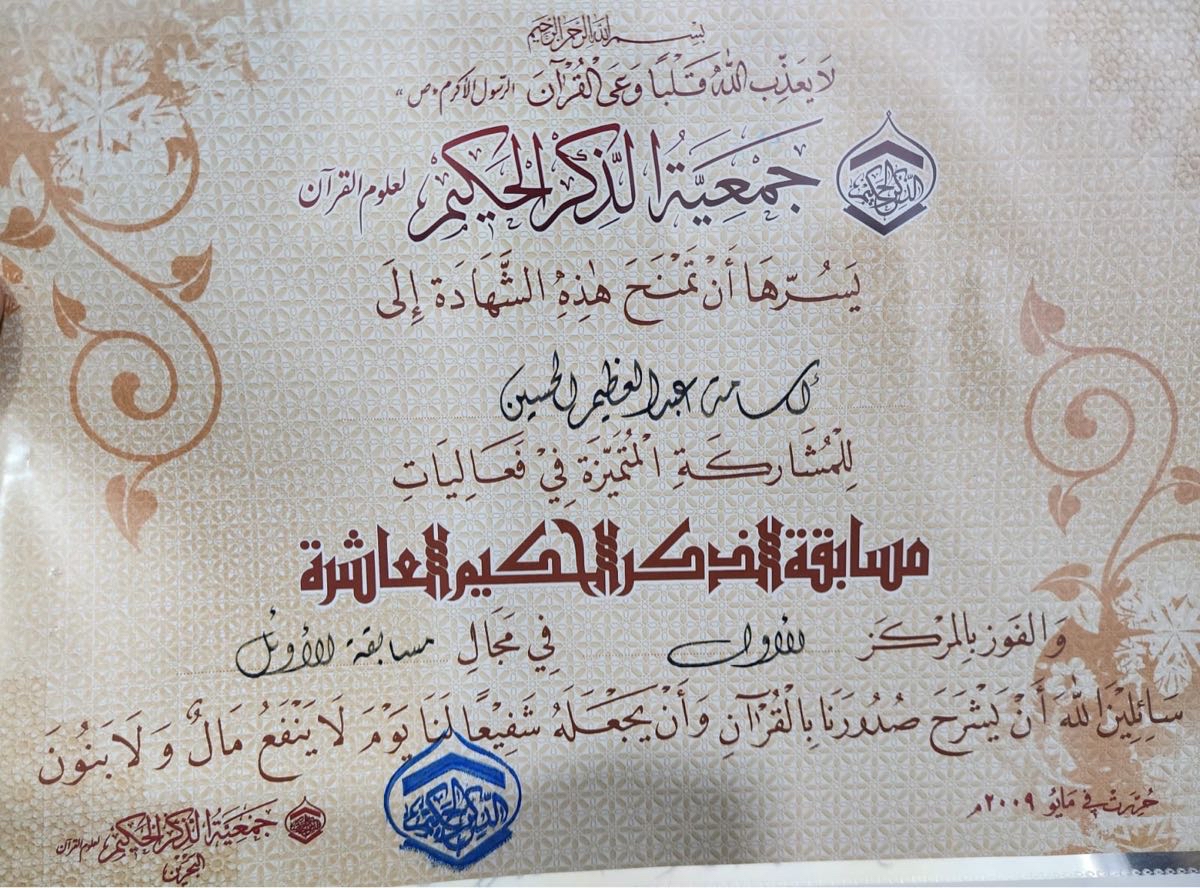 بسم الله الرحمن الرحيم
لَا يُعَذِّبُ اللهُ قَلْبًا وَعَى الْقُرْآنَ الرسول الأكرم "ص"
جَمْعِيَّةُ الذِّكْرِ الحَكِيْم لعلوم القرآن
الذكر الحكيم
يَسُرّهَا أَنْ تَمْنَحَ هٰذِهِ الشَّهَادَة إِلَى
أسامة عبدالعظيم الحسين
لِلْمُشَارَكَةِ الْمُتَمَيِّزَةِ فِيْ فَعَالِيَاتِ
مسابقة الذكر الحكيم العاشرة
وَالفَوز بِالْمَرْكَز الأول فِي مَجَالِ مسابقة الأوئل
سَائِلِيْنَ اللهَ أَنْ يَشْرَحَ صُدُورَنَا بِالْقُرْآنِ وَأَنْ يَجْعَلَهُ شَفِيْعًا لَنَا يَوْمَ لَا يَنْفَعُ مَالٌ وَلَا بَنُونَ
حُرِّرَتْ في مَايُو ٢٠٠٩م
الذكر الحكيم
جَمْعِيَّةُ الذِّكْرِ الحَكِيْم لعلوم القرآن
البحرين